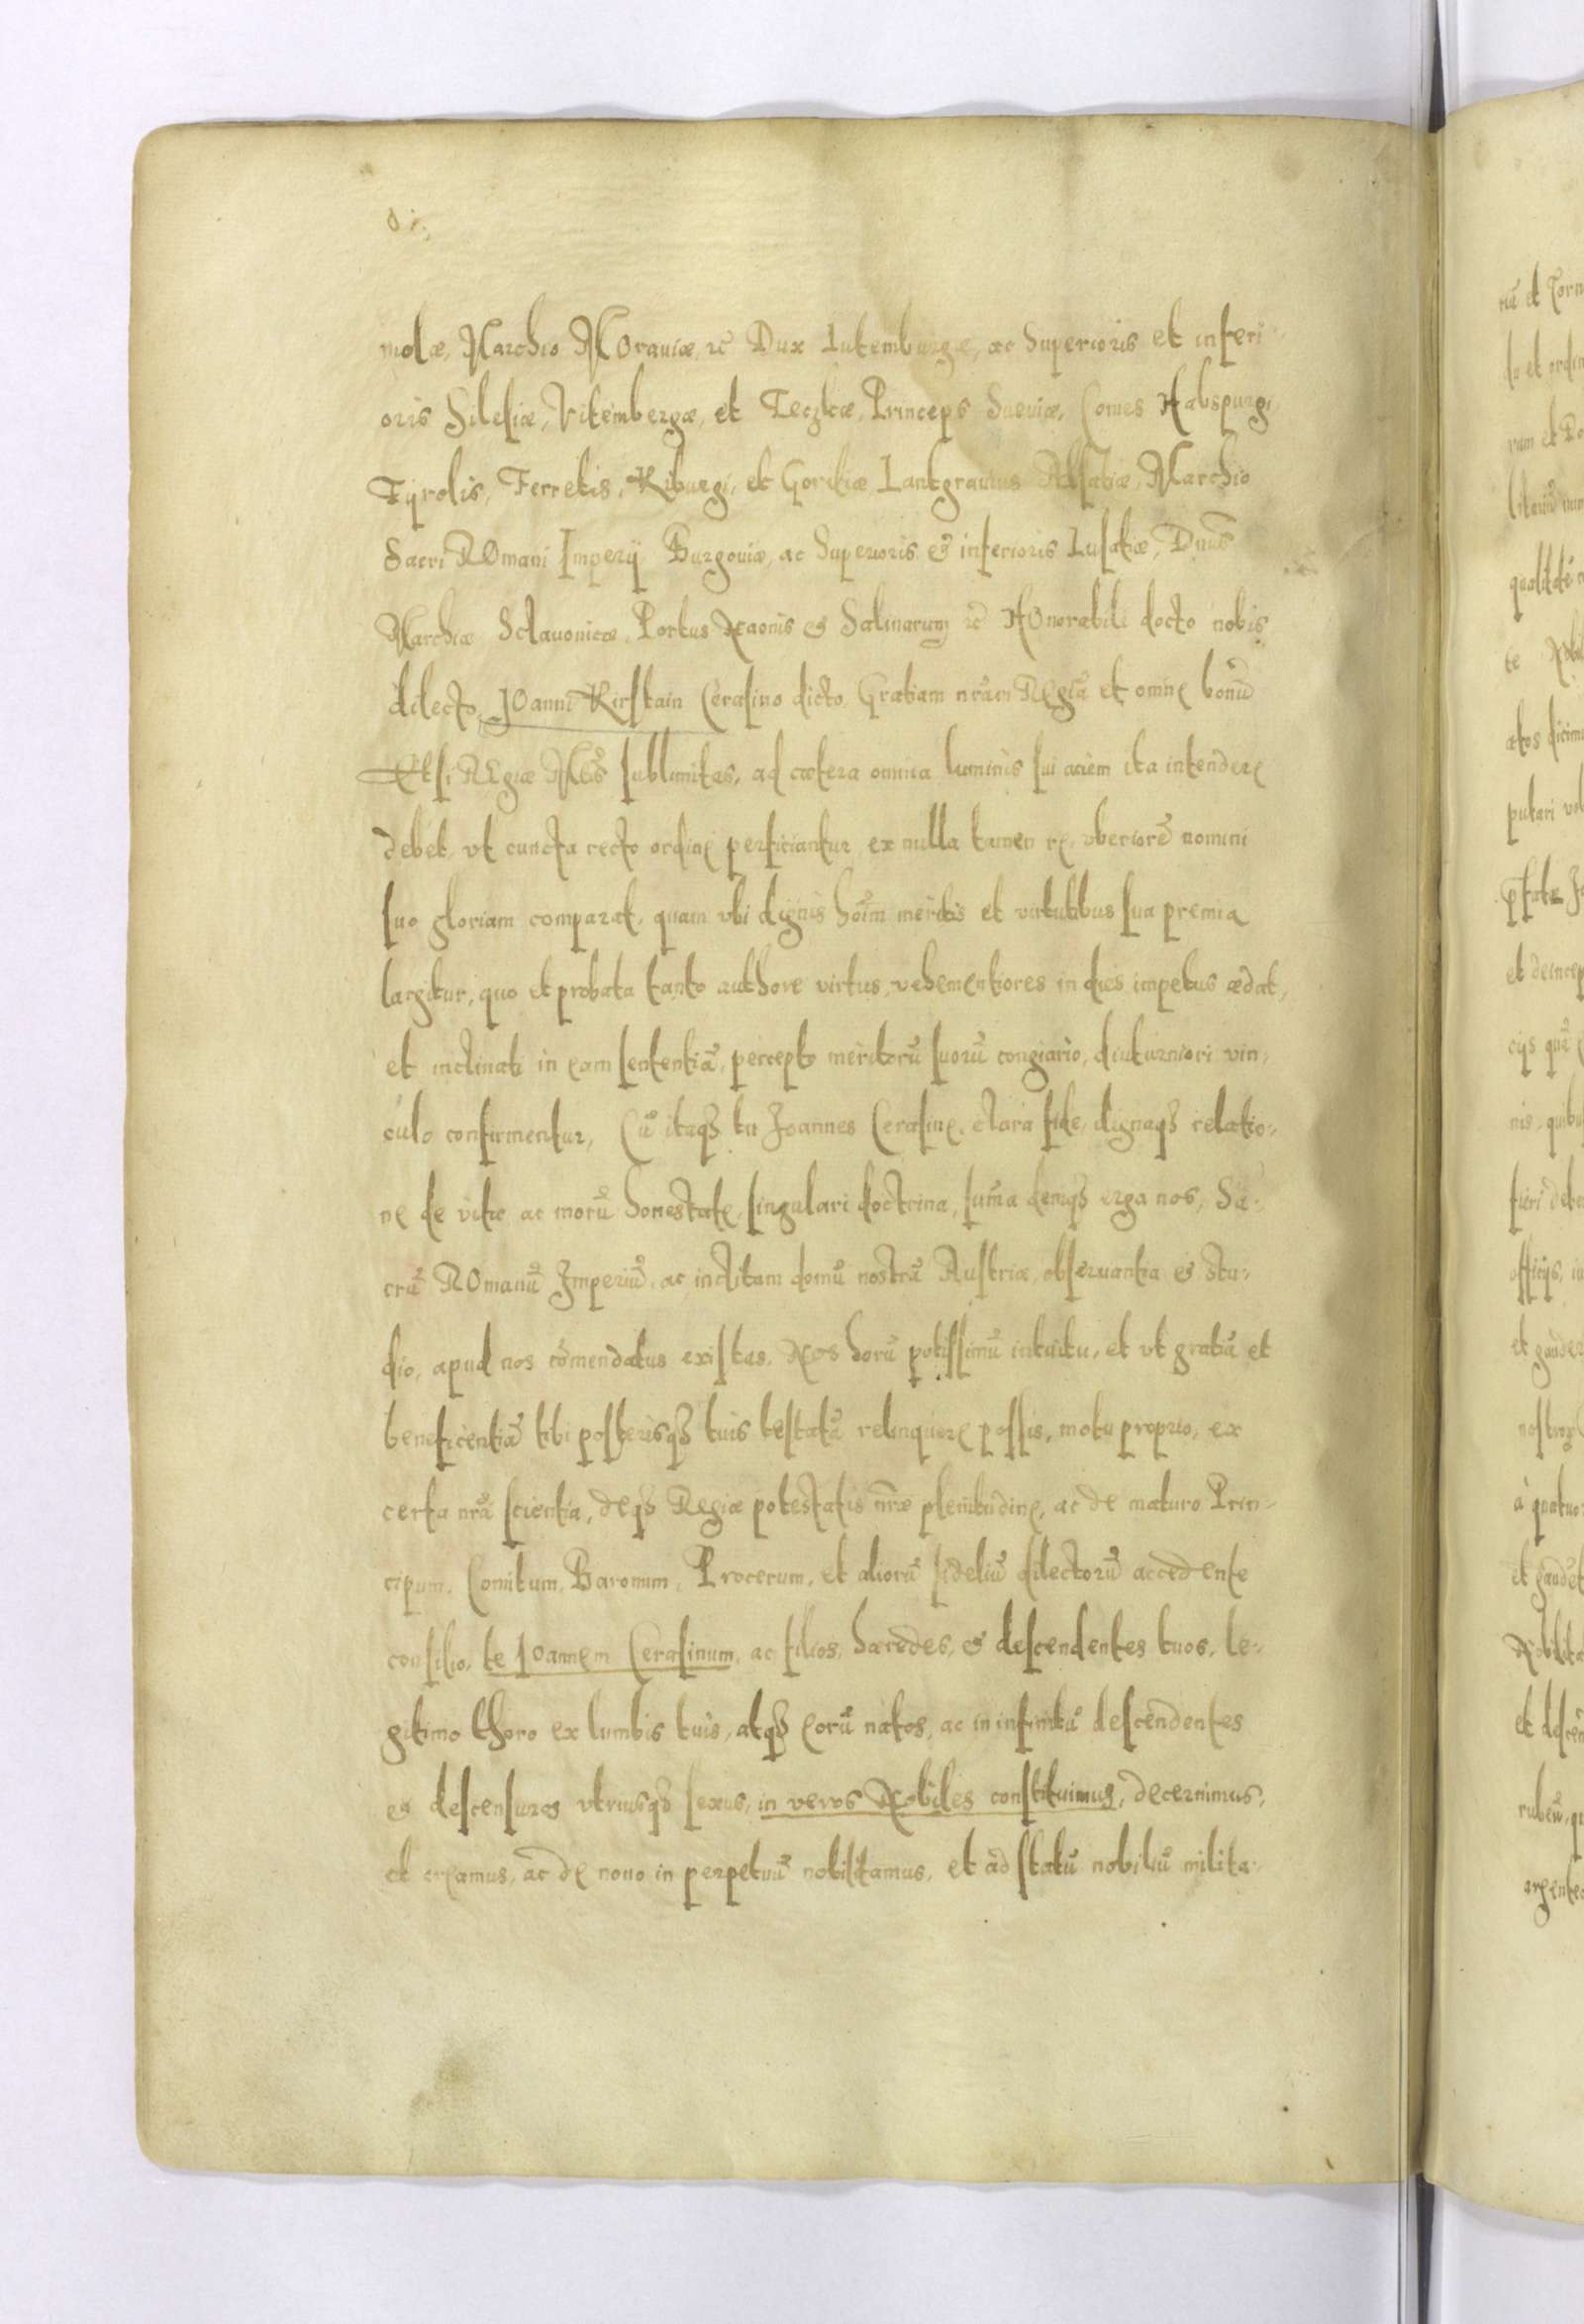 molæ, Marchio MOrauiæ, ꝛc̃ Dux Lutemburgæ, ac Superioris et inferi-
oris Silesiæ, Vitembergæ, et Teczkæ, Princeps Sueuiæ, Comes Habspurgi,
Tÿrolis, Ferretis, Kiburgi, et Goritiæ, Lantgrauius Alsatiæ, Marchio
Sacri ROmani Imperÿ Burgouiæ, ac Superioris & inferioris Lusatiæ, Dñus
Marchiæ Sclauonicæ, Portus Naonis & Salinarum ꝛc̃ HOnorabili docto nobis
dilecto, JOanni Kirstain Cerasino dicto Gratiam nr̃am REgiã et omne bonũ
Etsi REgiæ Mtis sublimitas, ad cætera omnia luminis sui aciem ita intendere
debet, vt cuncta recto ordine perficiantur, ex nulla tamen re, vberiorẽ nomini
suo gloriam comparat, quam vbi dignis hoĩm meritis et virtutibus sua premia
largitur, quo et probata tanto authore virtus, vehementiores in dies impetus ædat,
et inclinati in eam sententiã, percepto meritorũ suorũ congiario, diuturniori vin-
culo confirmentur, Cũ itaqꝫ tu Joannes Cerasine, clara fide, dignaqꝫ relatio-
ne de vitæ ac morũ honestate, singulari doctrina, sum̃a deniqꝫ erga nos, Sa-
crũ ROmanũ Imperiũ, ac inclitam domũ nostrã Austriæ, obseruantia & stu-
dio, apud nos cõmendatus existas, Nos horũ potissimũ intuitu, et vt gratiã et
beneficentiã tibi posterisqꝫ tuis testatã relinquere possis, motu proprio, ex
certa nr̃a scientia, deqꝫ Regiæ potestatis nr̃æ plenitudine, ac de maturo Prin-
cipum, Comitum, Baronum, Procerum, et aliorũ fideliũ dilectorũ accedente
consilio, te JOannem Cerasinum, ac filios, hæredes, & descendentes tuos, le-
gitimo thoro ex lumbis tuis, atqꝫ eorũ natos, ac in infinitũ descendentes
& descensuros vtriusqꝫ sexus, in veros Nobiles constituimus, decernimus,
et creamus, ac de nouo in perpetuũ nobilitamus, et ad statũ nobiliũ milita-